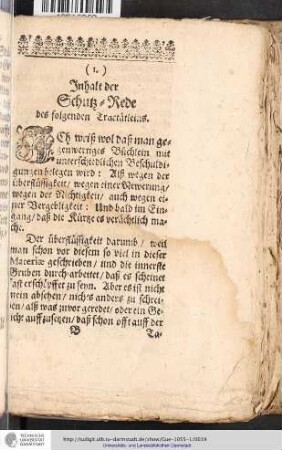 ( 1. )
Inhalt der
Schutz-Rede
des folgenden Tractätleins.
ICh weiß wol daß man ge-
genwertiges Büchlein mit
unterschiedlichen Beschuldi-
gungen belegen wird: Alß wegen der
überflüssigkeit/ wegen einer Newerung/
wegen der Nichtigkeit/ auch wegen ei-
ner Vergebligkeit: Und bald im Ein-
gang/ daß die Kürtze es verächtlich ma-
che.
Der überflüssigkeit darumb/ weil
man schon vor diesem so viel in dieser
Materiæ geschrieben/ und die innerste
Gruben durch arbeitet/ daß es scheinet
fast erschöpffet zu seyn. Aber es ist nicht
mein absehen/ nichts anders zu schrei-
ben/ alß was zuvor geredet/ oder ein Ge-
auffzusetzen/ daß schon offt auff der
B Ta-
TECHNISCHE
UNIVERSITÄT
DARMSTADT
http://tudigit.ulb.tu-darmstadt.de/show/Gue-1055-1/0039
Universitäts- und Landesbibliothek Darmstadt